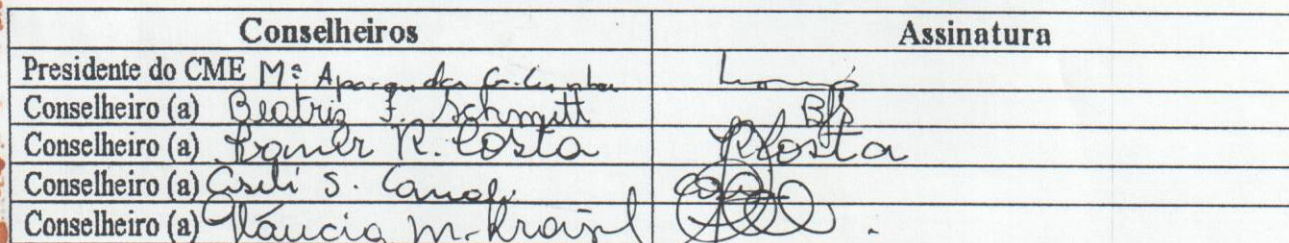 Conselheiros Assinatura
Presidente do CME Mª Aparecida
Conselheiro (a) Beatriz F. Schmitt BFS
Conselheiro (a) R. Costa RCosta
Conselheiro (a) Giseli S.
Conselheiro (a) Gláucia M.